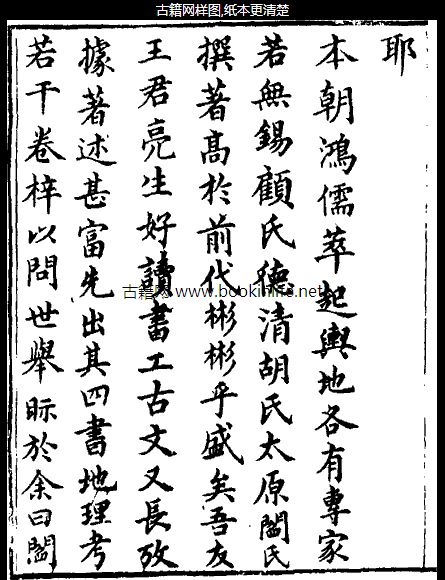 古籍网样图,纸本更清楚
耶
本朝鴻儒萃起輿地各有專家
若無錫顧氏德清胡氏太原閻氏
撰著髙於前代彬彬乎盛矣吾友
王君亮生好讀書工古文又長攷
據著述甚富先出其四書地理考
若干卷梓以問世舉眎於余曰閻
古籍网 www.bookinlife.net